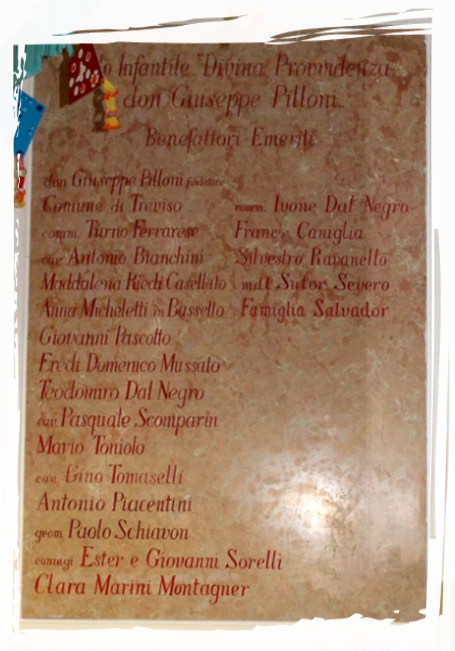 lo Infantile "Divina Provvidenza
don Giuseppe Pilloni"
Benefattori Emeriti
don Giuseppe Pilloni fondatore
Comune di Treviso
comm. Turno Ferrarese
cav. Antonio Bianchini
Maddalena Riedi Casellato
Anna Micheletti in Bassetto
Giovanni Pascotto
Eredi Domenico Mussato
Teodomiro Dal Negro
cav. Pasquale Scomparin
Mario Toniolo
cav. Gino Tomaselli
Antonio Piacentini
geom. Paolo Schiavon
coniugi Ester e Giovanni Sorelli
Clara Marini Montagner
comm. Ivone Dal Negro
Franca Caniglia
Silvestro Ravanello
Sutor Severo
Famiglia Salvador